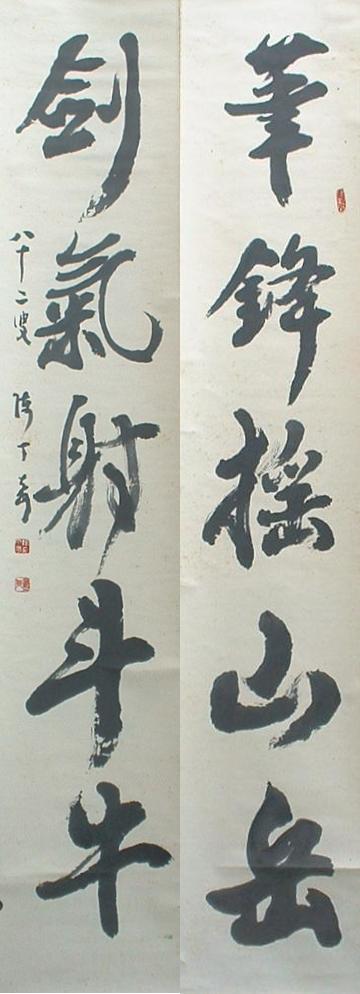 筆鋒搖山岳
劍氣射斗牛
八十二叟 陳丁奇